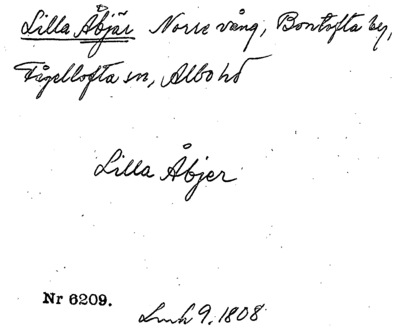 Lilla Åbjär Norre vång, Bontofta by,
Fågeltofta sn, Albo hd
Lilla Åbjer
Nr 6209.
Lmh 9. 1808